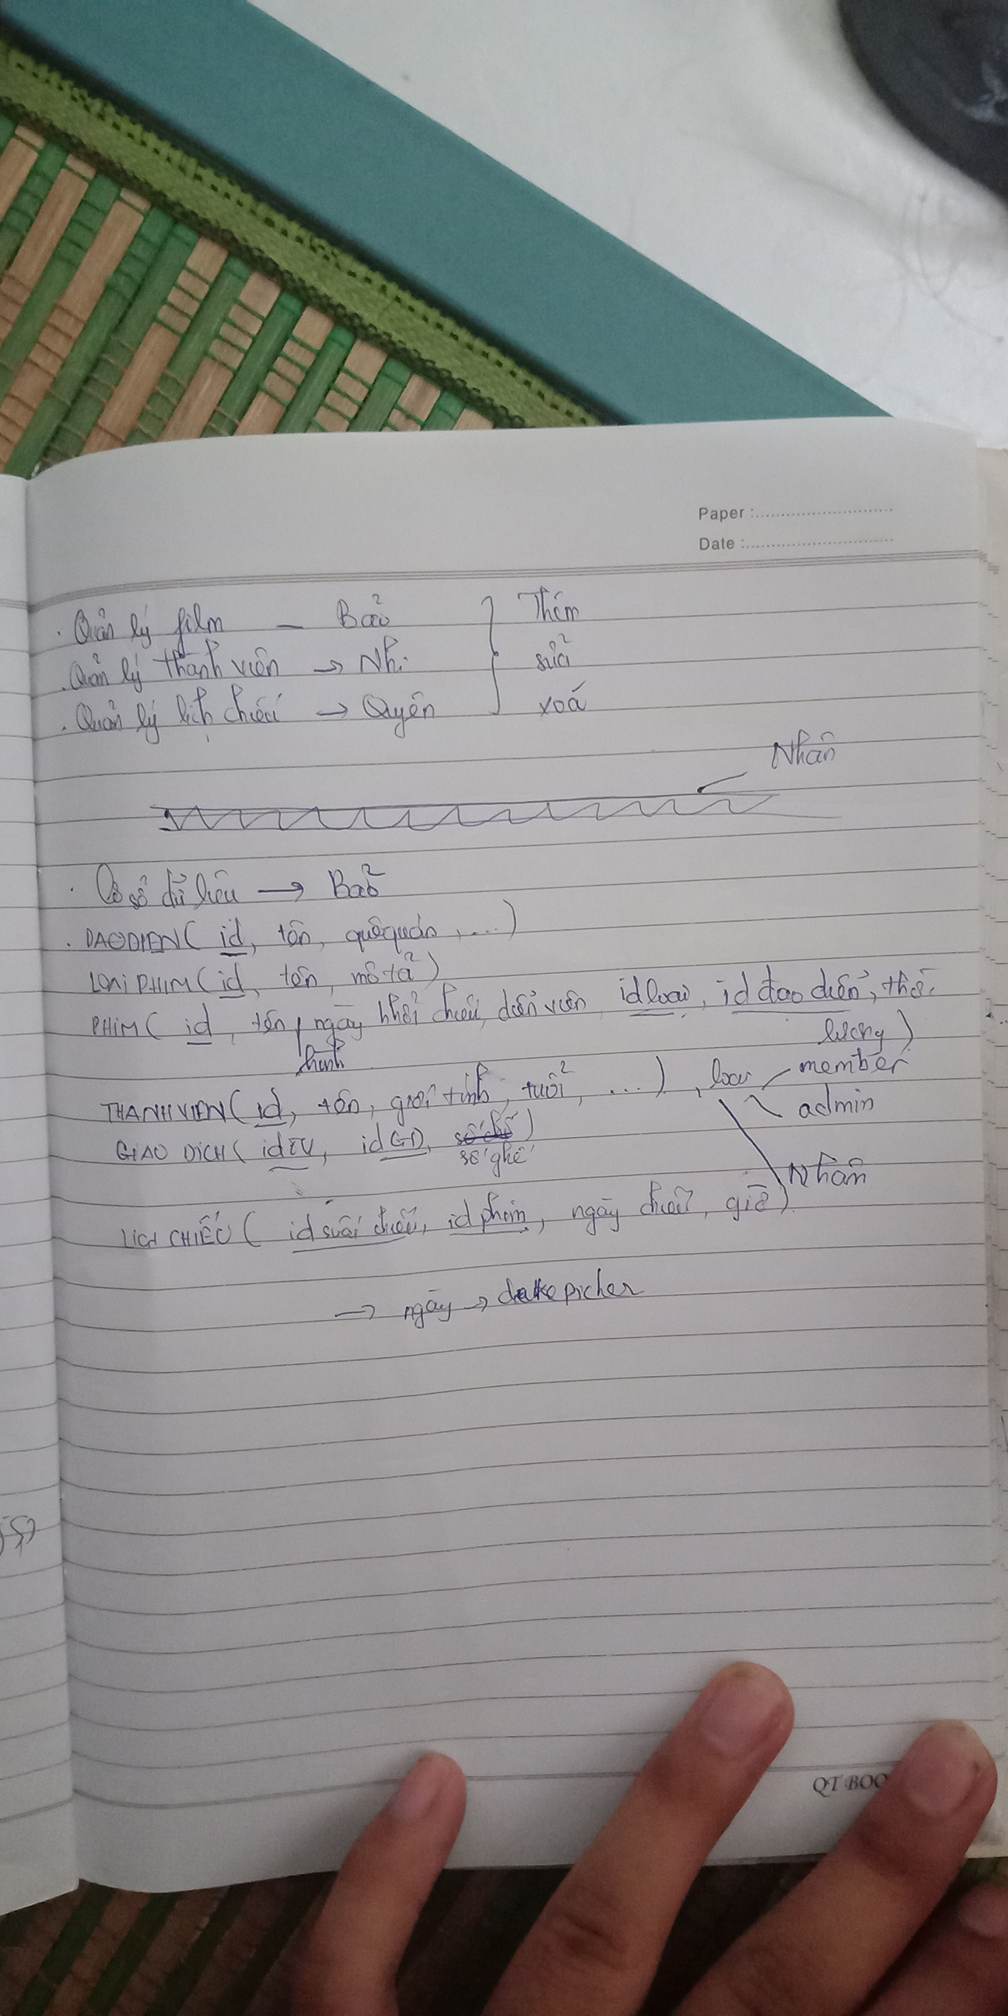 Paper :
Date :
. Quản lý film – Bảo } Thêm
. Quản lý thành viên → Nhi sửa
. Quản lý lịch chiếu → Quyên xoá
Nhân
. Cơ sở dữ liệu → Bảo
. DAODIEN( id, tên, quê quán, ...)
LOAI PHIM( id, tên, mô tả)
PHIM( id, tên, hình ngày khởi chiếu, diễn viên, id loại, id đạo diễn, thời lượng)
THANH VIEN( id, tên, giới tính, tuổi, ...), loại member
admin
Nhân
GIAO DICH( idTV, idGD, số ghế)
LICH CHIẾU ( id suất chiếu, id phim, ngày chiếu, giờ)
→ ngày → datepicker
QT BOO